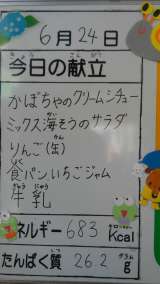 6月24日
今日の献立
かぼちゃのクリームシチュー
ミックス海そうのサラダ
りんご(缶)
食パンいちごジャム
牛乳
ネルギー 683 Kcal
たんぱく質 26.2 g